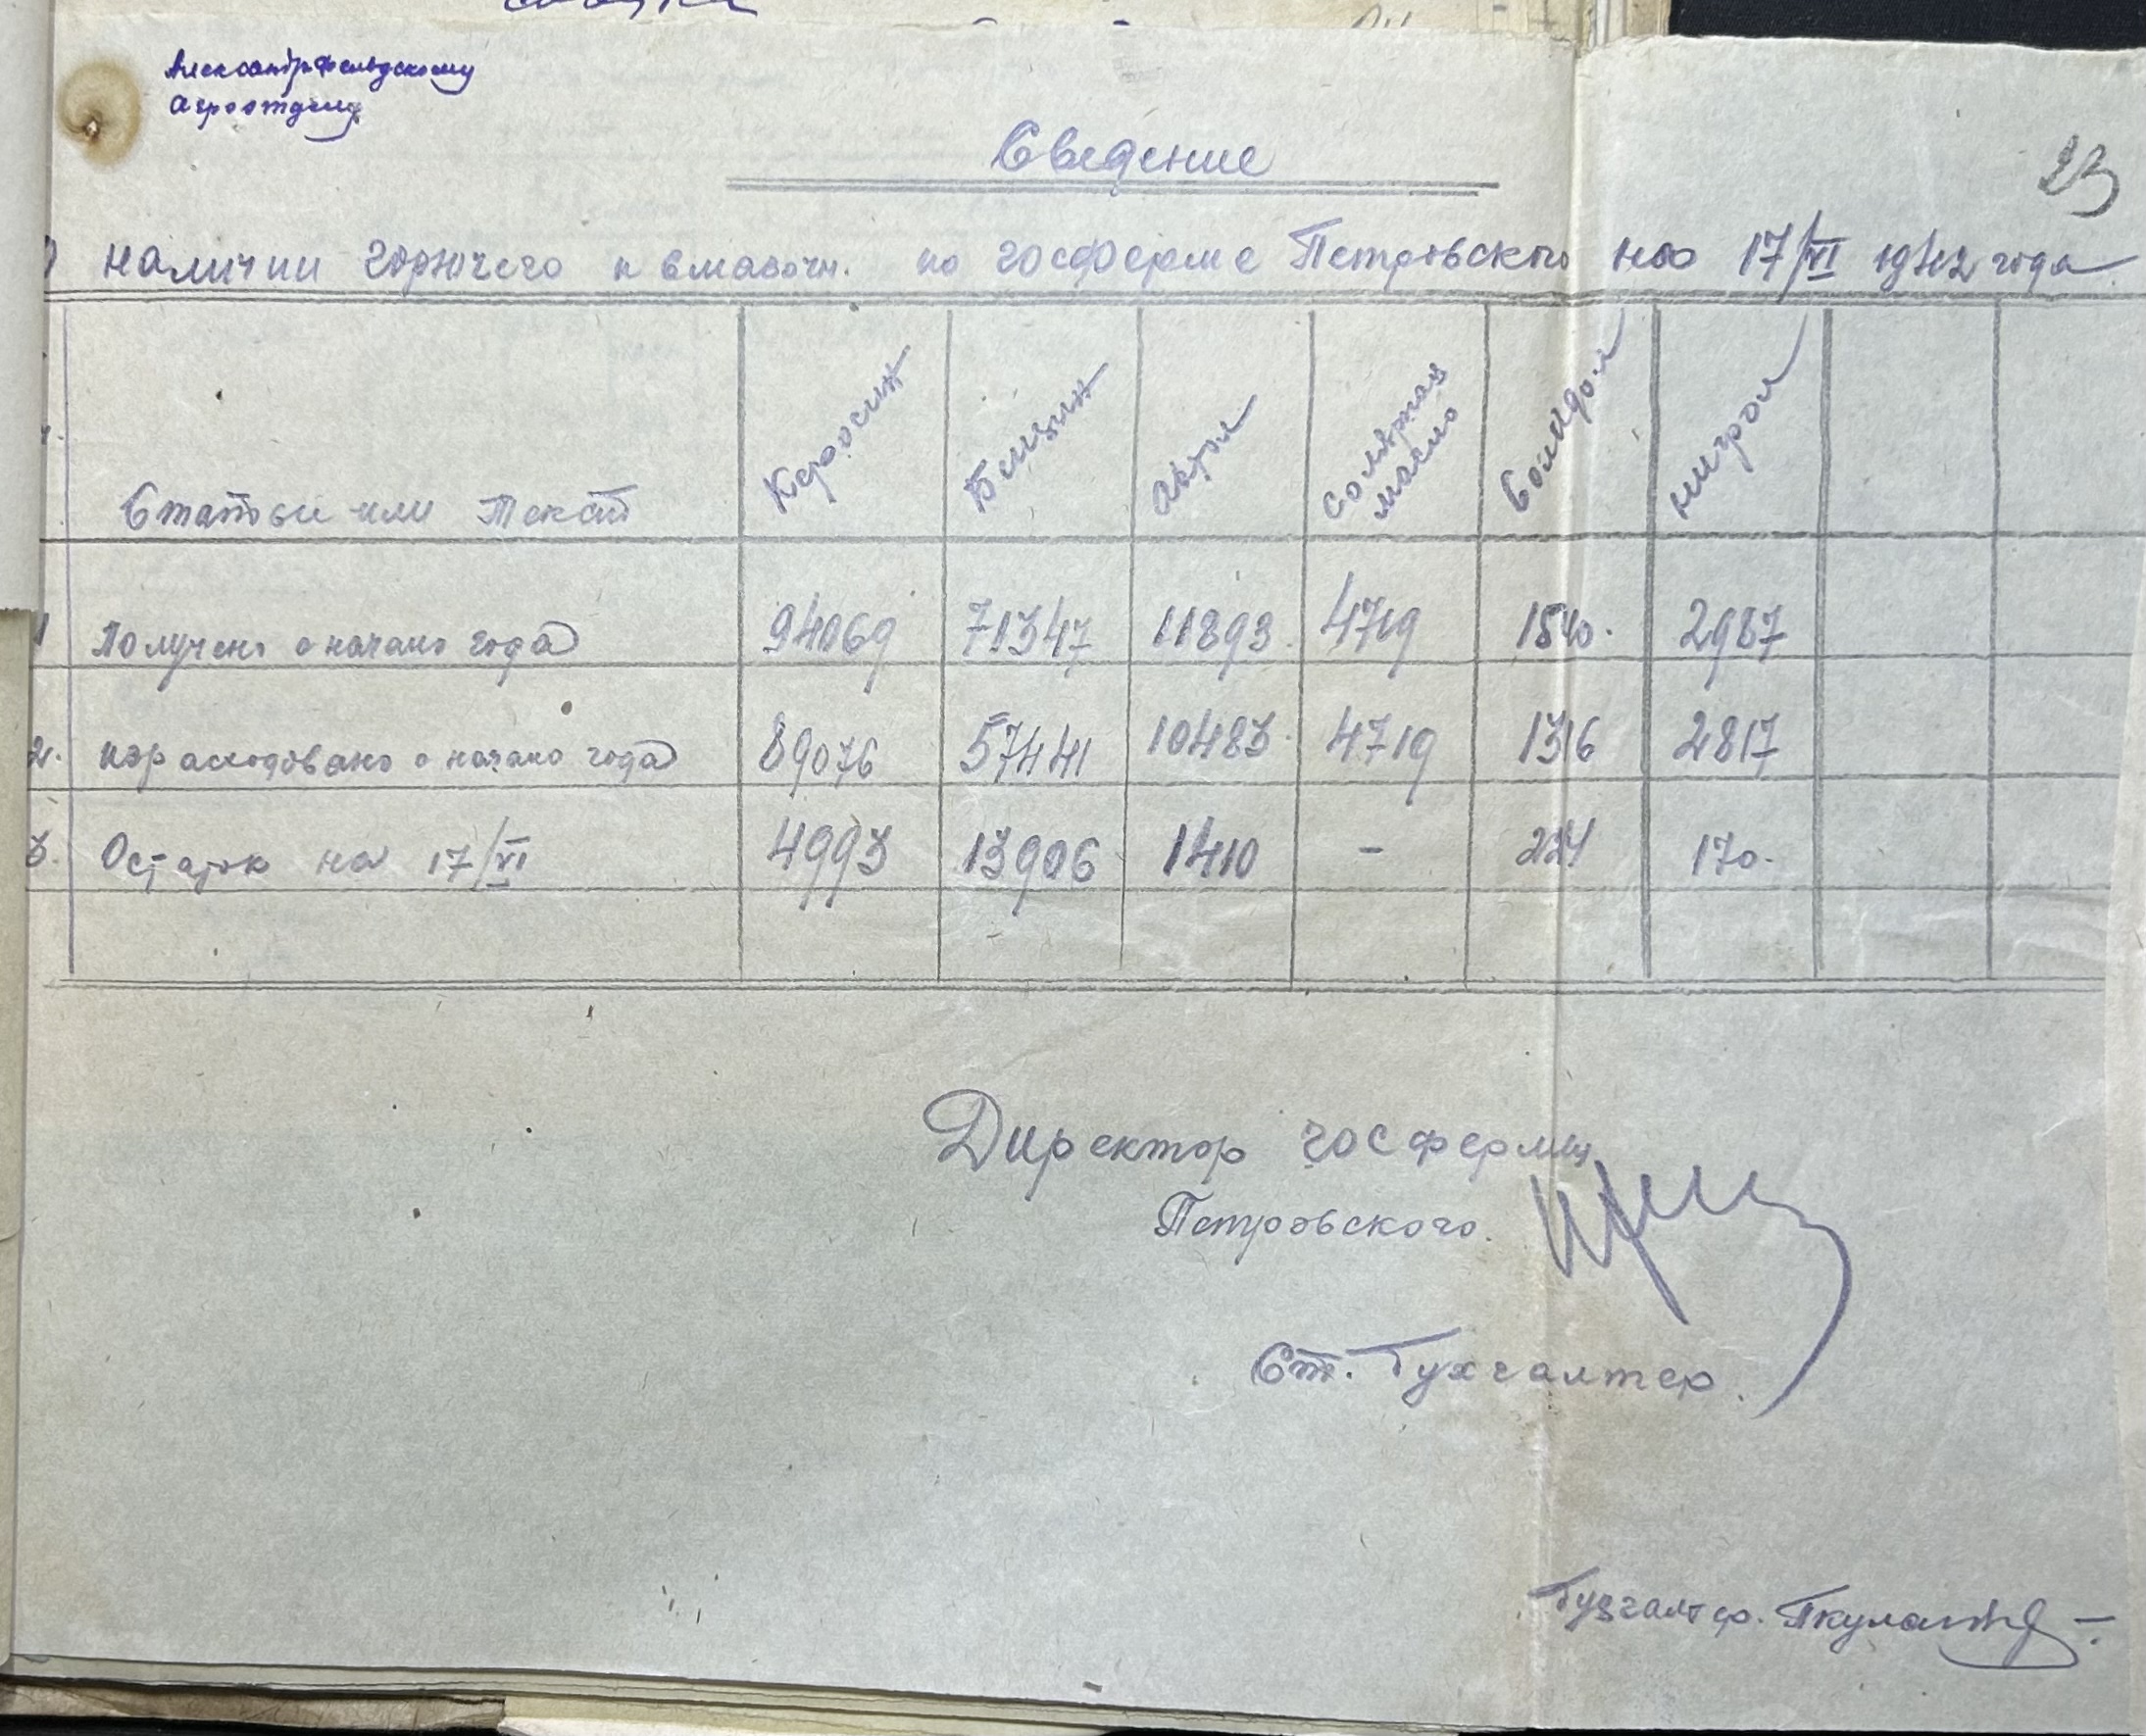 Александрфельдскому
агроотделу
Сведение
23
О наличии горючего и смазочн. по госферме Петровского на 17/VI 1942 года
Статьи или Текст Керосин Бензин Автол Солярная масло Солидол нигрол
1 Получено с начало года 94069 71347 11893 4719 1540 2987
2. израсходовано с начало года 89076 57441 10483 4719 1316 2817
3. Остаток на 17/VI 4993 13906 1410 - 224 170
Директор госфермы
Петровского.
Ст. Бухгалтер.
Бухгалтер.